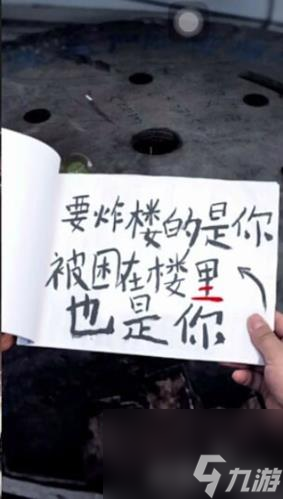 要炸楼的是你
被困在楼里
也是你
九游